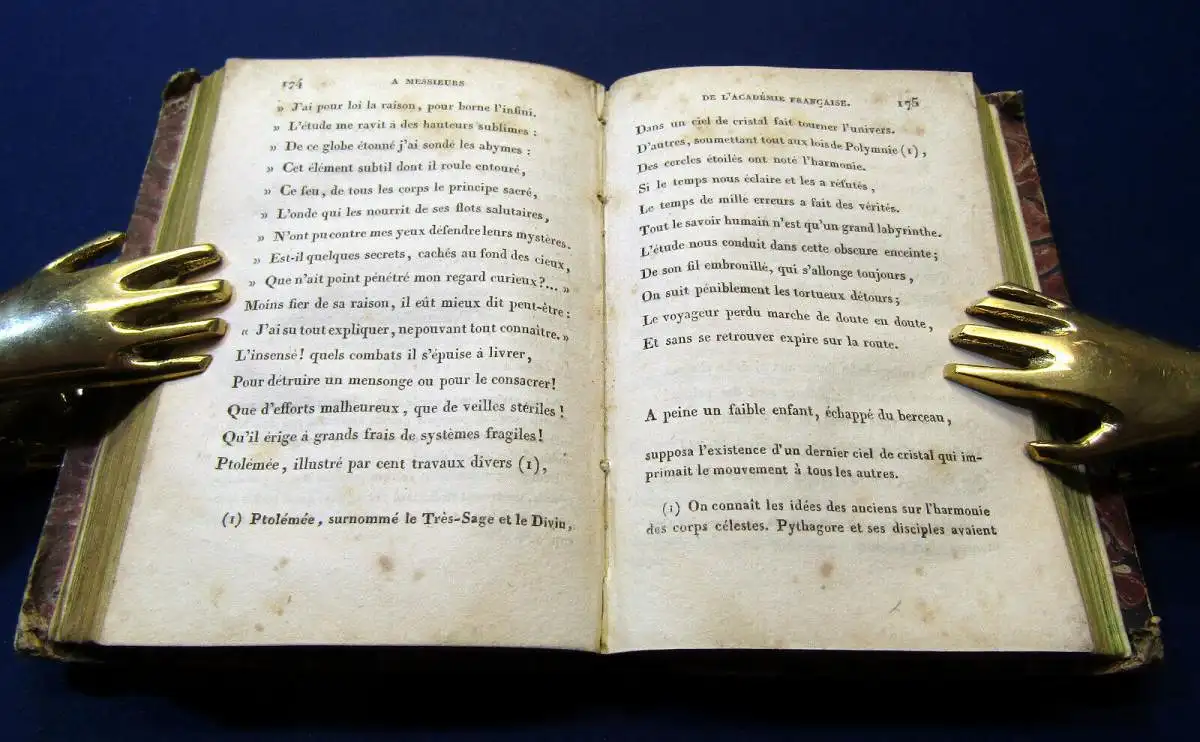 174
A MESSIEURS
» J'ai pour loi la raison, pour borne l'infini.
» L'étude me ravit à des hauteurs sublimes :
» De ce globe étonné j'ai sondé les abymes :
» Cet élément subtil dont il roule entouré,
» Ce feu, de tous les corps le principe sacré,
» L'onde qui les nourrit de ses flots salutaires,
» N'ont pu contre mes yeux défendre leurs mystères.
» Est-il quelques secrets, cachés au fond des cieux,
» Que n'ait point pénétré mon regard curieux?... »
Moins fier de sa raison, il eût mieux dit peut-être :
« J'ai su tout expliquer, ne pouvant tout connaître. »
L'insensé! quels combats il s'épuise à livrer,
Pour détruire un mensonge ou pour le consacrer!
Que d'efforts malheureux, que de veilles stériles!
Qu'il érige à grands frais de systèmes fragiles!
Ptolémée, illustré par cent travaux divers (1),
(1) Ptolémée, surnommé le Très-Sage et le Divin,
DE L'ACADÉMIE FRANÇAISE.
175
Dans un ciel de cristal fait tourner l'univers.
D'autres, soumettant tout aux lois de Polymnie (1),
Des cercles étoilés ont noté l'harmonie.
Si le temps nous éclaire et les a réfutés,
Le temps de mille erreurs a fait des vérités.
Tout le savoir humain n'est qu'un grand labyrinthe.
L'étude nous conduit dans cette obscure enceinte;
De son fil embrouillé, qui s'allonge toujours,
On suit péniblement les tortueux détours;
Le voyageur perdu marche de doute en doute,
Et sans se retrouver expire sur la route.
A peine un faible enfant, échappé du berceau,
supposa l'existence d'un dernier ciel de cristal qui im-
primait le mouvement à tous les autres.
(1) On connaît les idées des anciens sur l'harmonie
des corps célestes. Pythagore et ses disciples avaient